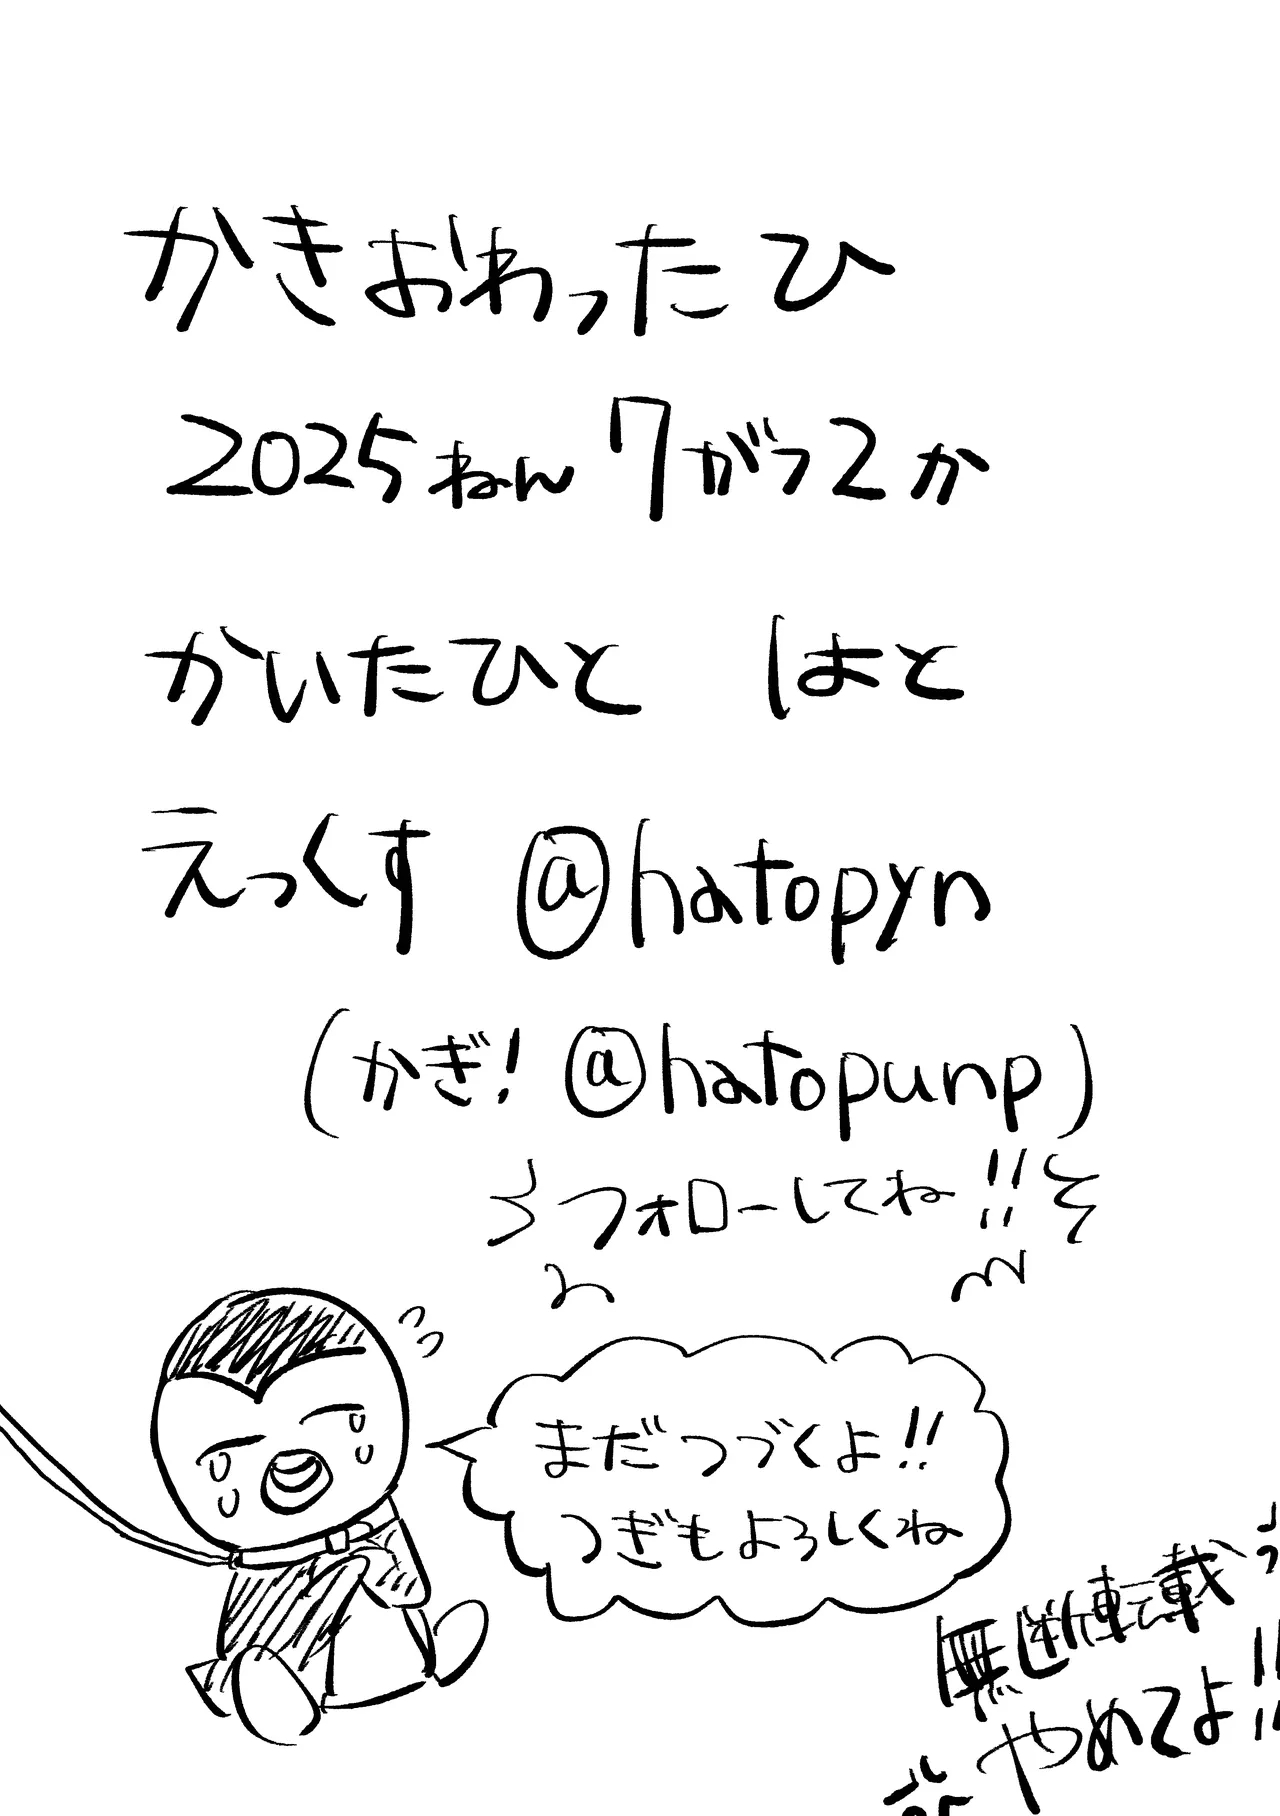 かきおわったひ
2025ねん7がつ2か
かいたひと　はと
えっくす @hatopyn
(かぎ! @hatopunp)
フォローしてね!!
まだつづくよ!!
つぎもよろしくね
無断転載
やめてよ!!